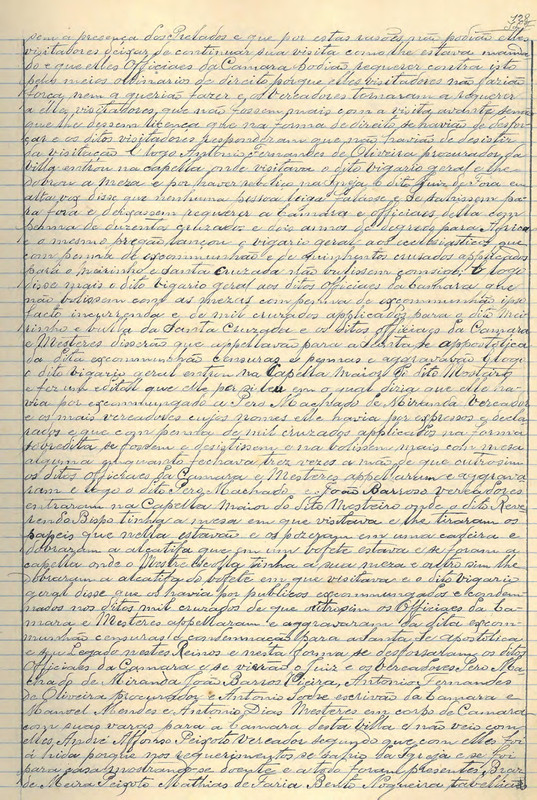 128
sem a presença dos Prelados e que por estas rasões não podião elles
visitadores deixar de continuar sua visita como lhe estava manda
do e que elles Officiaes da Camara podião requerer contra isto
pelos meios ordinarios de direito porque elles visitadores não fazião
força, nem a queria fazer e os vereadores tornaram a requerer
a elles, visitadores, que não fossem mais com a visita avante senão
que lhe dessem licença que na forma de direito se havião de desfor
çar e os ditos visitadores responderam que não havião de desistir
da visitação E logo Antonio Fernandes de Oliveira procurador da
villa entrou na capella onde visitava o dito vigario geral e lhe
dobrou a meza e por haver reboliço na Igreja o dito Juiz de Fora em
alta voz disse que nenhuma pessoa leiga falasse e se sahissem pa
ra fora e deixassem requerer a Camara e officiaes della com
penna de duzentos cruzados e dois annos de degredo para Africa
e o mesmo pregão lançou o vigario geral aos ecclesiasticos que
com penna de excommunhão e de quinhentos crusados applicados
para o meirinho e Santa Cruzada não bulissem comsigo. E logo
disse mais o dito vigario geral aos ditos officiaes da Camara que
não bulissem com as mezas com penna de excommunhão ipso
facto incurrenda e de mil cruzados applicados para o dito Mei
rinho e bulla da Santa Cruzada e os ditos officiaes da Camara
e Mesteres disserão que appellavão para a Santa Sé appostolica
da dita excommunhão censuras e pennas e aggravavão E logo
o dito vigario geral entrou na Capella Maior do dito Mosteiro
e fez um edital que elle por si leu em o qual dizia que elle ha
via por excommungado a Pero Machado de Miranda Vereador
e os mais vereadores cujos nomes elle havia por expressos e decla
rados e que com penna de mil cruzados applicados na forma
sobredita se fossem e desistissem e não bolissem mais com mesa
alguma em quanto fechava trez vezes a mão de que outrosim
os ditos officiaes da Camara e Mesteres appellaram e aggrava
ram e logo o dito Pero Machado e João Barroso Vereadores
entraram na Capella Maior do dito Mosteiro onde o dito Reve
rendo Bispo tinha a mesa em que visitava e lhe tiraram os
papeis que nella estavão e os pozeram em uma cadeira e
dobraram a alcatifa que em um bofete estava e se foram a
capella onde o Mestre Escolla tinha a sua meza e outro sim lhe
dobraram a alcatifa do bofete em que visitava e o dito vigario
geral disse que os havia por publicos excommungados e condem
nados nos ditos mil cruzados de que outrosim os Officiaes da Ca
mara e Mesteres appellaram e aggravaram da dita excom
munhão censuras e condemnação para a Santa Sé apostolica
e seu Legado nestes Reinos e nesta forma se desforsaram os ditos
Officiaes da Camara e se virão o Juiz e os Vereadores Pero Ma
chado de Miranda João Barros Vieira, Antonio Fernandes
de Oliveira procurador e Antonio escrivão da Camara e
Manoel Mendes e Antonio Dias Mesteres em corpo de Camara
com suas varas para a Camara desta Villa e não veio com
elles André Affonso Peixoto Vereador segundo que com elles foi
á hida porque nos requerimentos se sahio da Igreja e se foi
para casa mostrando-se doente e a todo foram presentes, Braz
de Meira Peixoto Mathias de Faria, Bento Nogueira tabelliaes